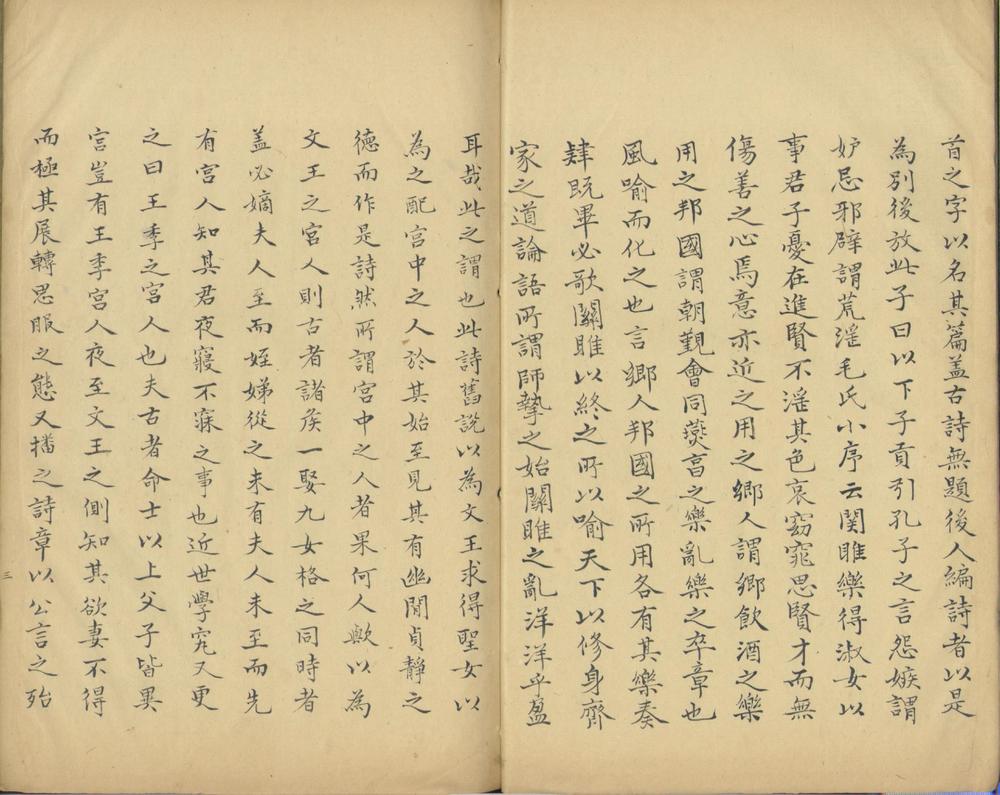 首之字以名其篇盖古詩無題後人編詩者以是
為別後放此子曰以下子貢引孔子之言怨嫉謂
妒忌邪辟謂荒滛毛氏小序云関雎樂得淑女以
事君子憂在進賢不滛其色哀窈窕思賢才而無
傷善之心焉意亦近之用之鄉人謂鄉飲酒之樂
用之邦國謂朝覲會同燕享之樂亂樂之卒章也
風喻而化之也言鄉人邦國之所用各有其樂奏
肄既畢必歌關雎以終之所以喻天下以修身齊
家之道論語所謂師摯之始關雎之亂洋洋乎盈
耳哉此之謂也此詩舊說以為文王求得聖女以
為之配宮中之人於其始至見其有幽閒貞靜之
德而作是詩然所謂宮中之人者果何人歟以為
文王之宮人則古者諸侯一娶九女格之同時者
盖必嫡夫人至而姪娣從之未有夫人未至而先
有宮人知其君夜寢不寐之事也近世學究又更
之曰王季之宮人也夫古者命士以上父子皆異
宮豈有王季宮人夜至文王之側知其欲妻不得
而極其展轉思服之態又播之詩章以公言之殆
三